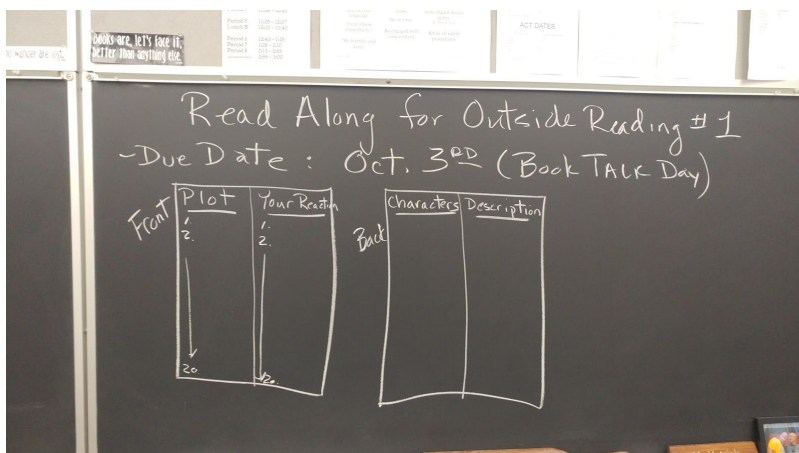 Books are, let's face it,
better than anything else.
ACT DATES
Read Along for Outside Reading #1
-Due Date: Oct. 3RD (Book TALK Day)
Front
Plot Your Reaction
1. 1.
2. 2.
20. 20.
Back
Characters Description